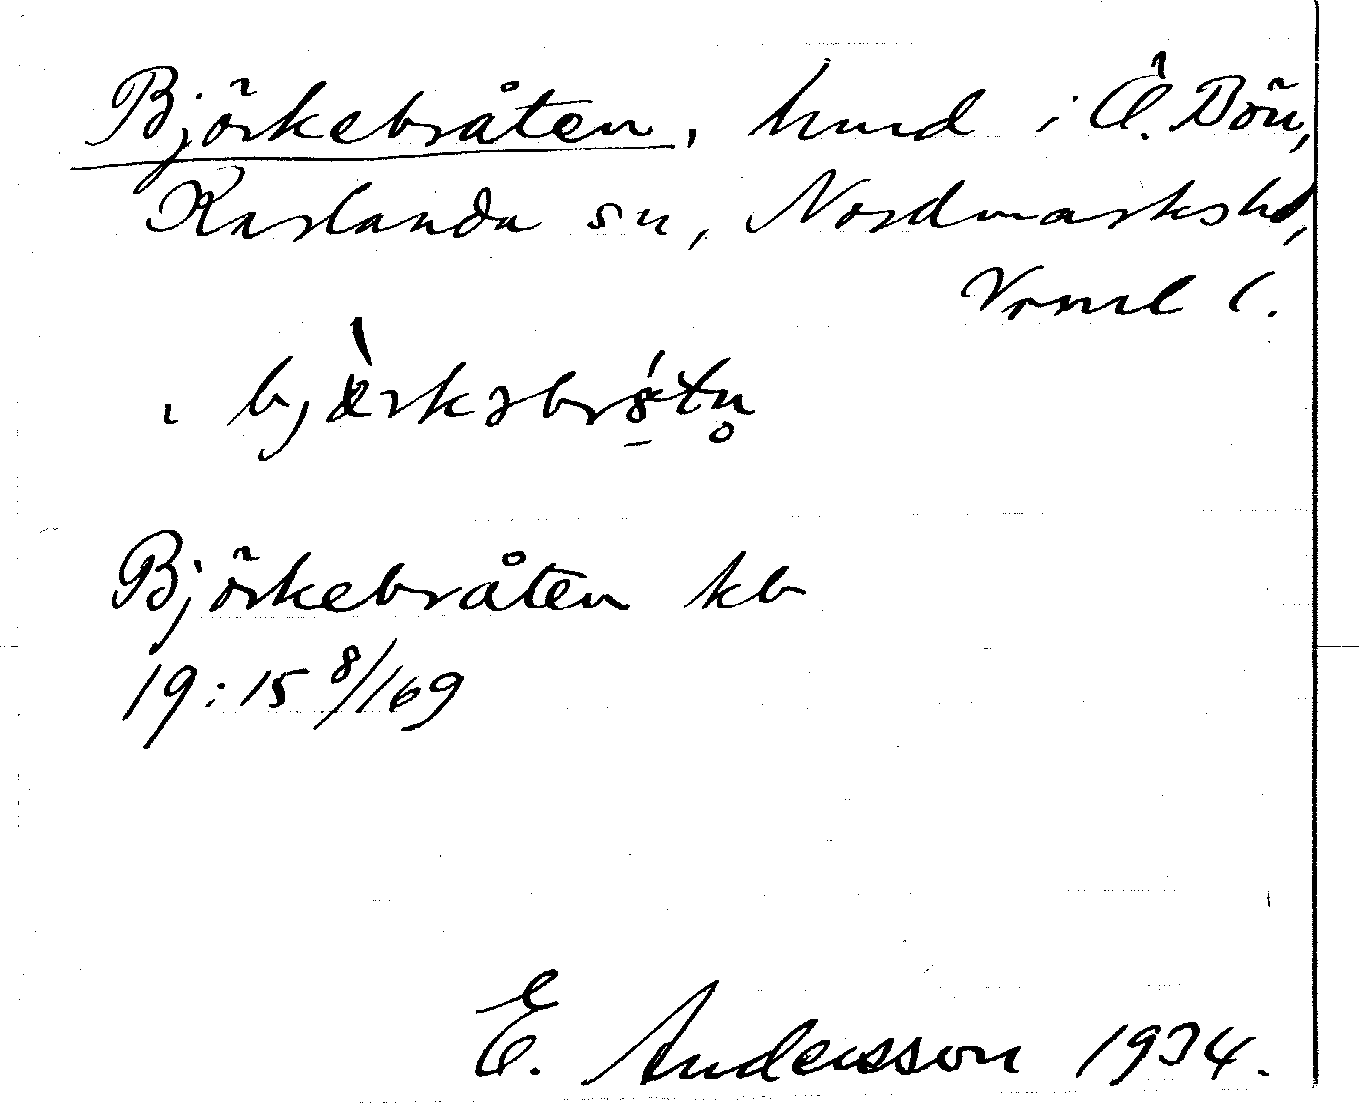 Björkebråten, hmd i Ö. Bön,
Karlanda sn, Nordmarkshd,
Vrml l.
bjærkəbrs̱tn̥
Björkebråten kb
19:15 8/169
E. Andersson 1934.